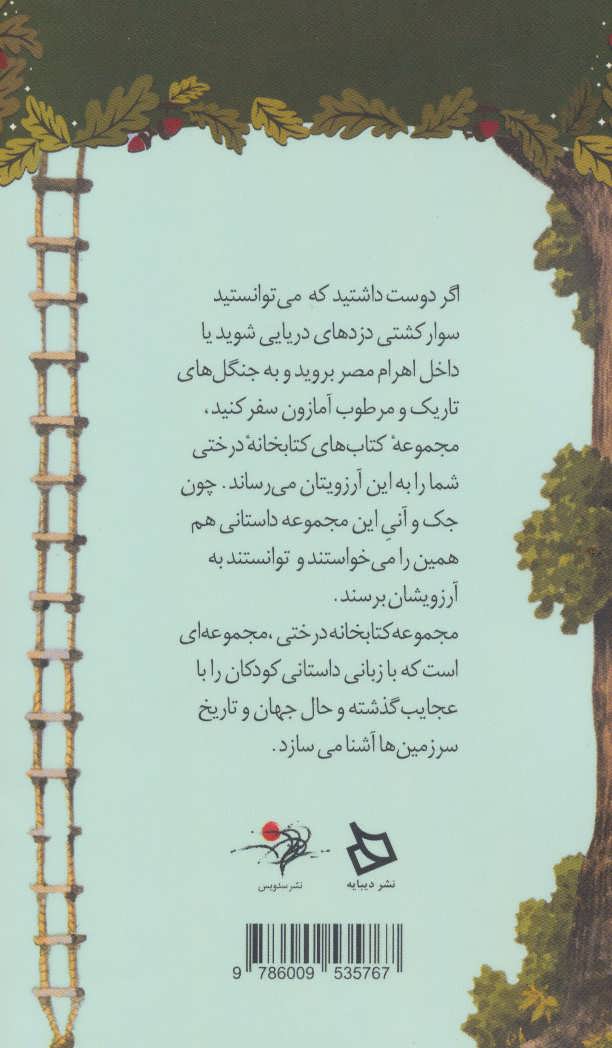 اگر دوست داشتید که می‌توانستید
سوار کشتی دزدهای دریایی شوید یا
داخل اهرام مصر بروید و به جنگل‌های
تاریک و مرطوب آمازون سفر کنید،
مجموعهٔ کتاب‌های کتابخانهٔ درختی
شما را به این آرزویتان می‌رساند. چون
جک و آنیِ این مجموعه داستانی هم
همین را می‌خواستند و توانستند به
آرزویشان برسند.
مجموعه کتابخانه درختی، مجموعه‌ای
است که با زبانی داستانی کودکان را با
عجایب گذشته و حال جهان و تاریخ
سرزمین‌ها آشنا می سازد.
نشر دیبایه
نشر سدویس
9 786009 535767